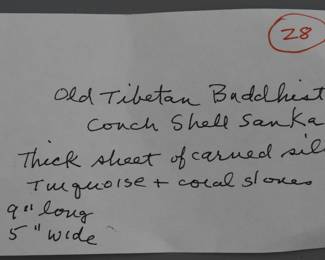 28
Old Tibetan Buddhist
Conch Shell SanKa
Thick sheet of carved sil
Turquoise + coral stones
9" long
5" wide